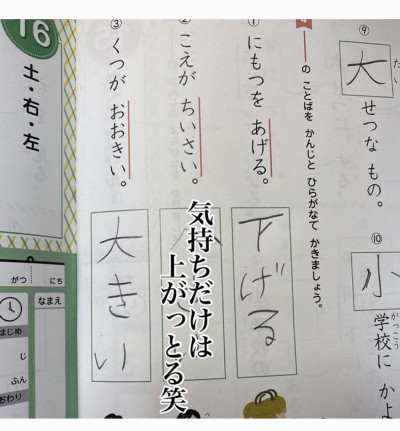 ⑨大せつな もの。
たい
⑩小学校に かよ
がっこう
4 ――の ことばを かんじと ひらがなで かきましょう。
①にもつを あげる。
下げる
②こえが ちいさい。
③くつが おおきい。
大きい
気持ちだけは
上がっとる笑
16
土・右・左
がつ にち
なまえ
はじめ
じ
ふん
おわり